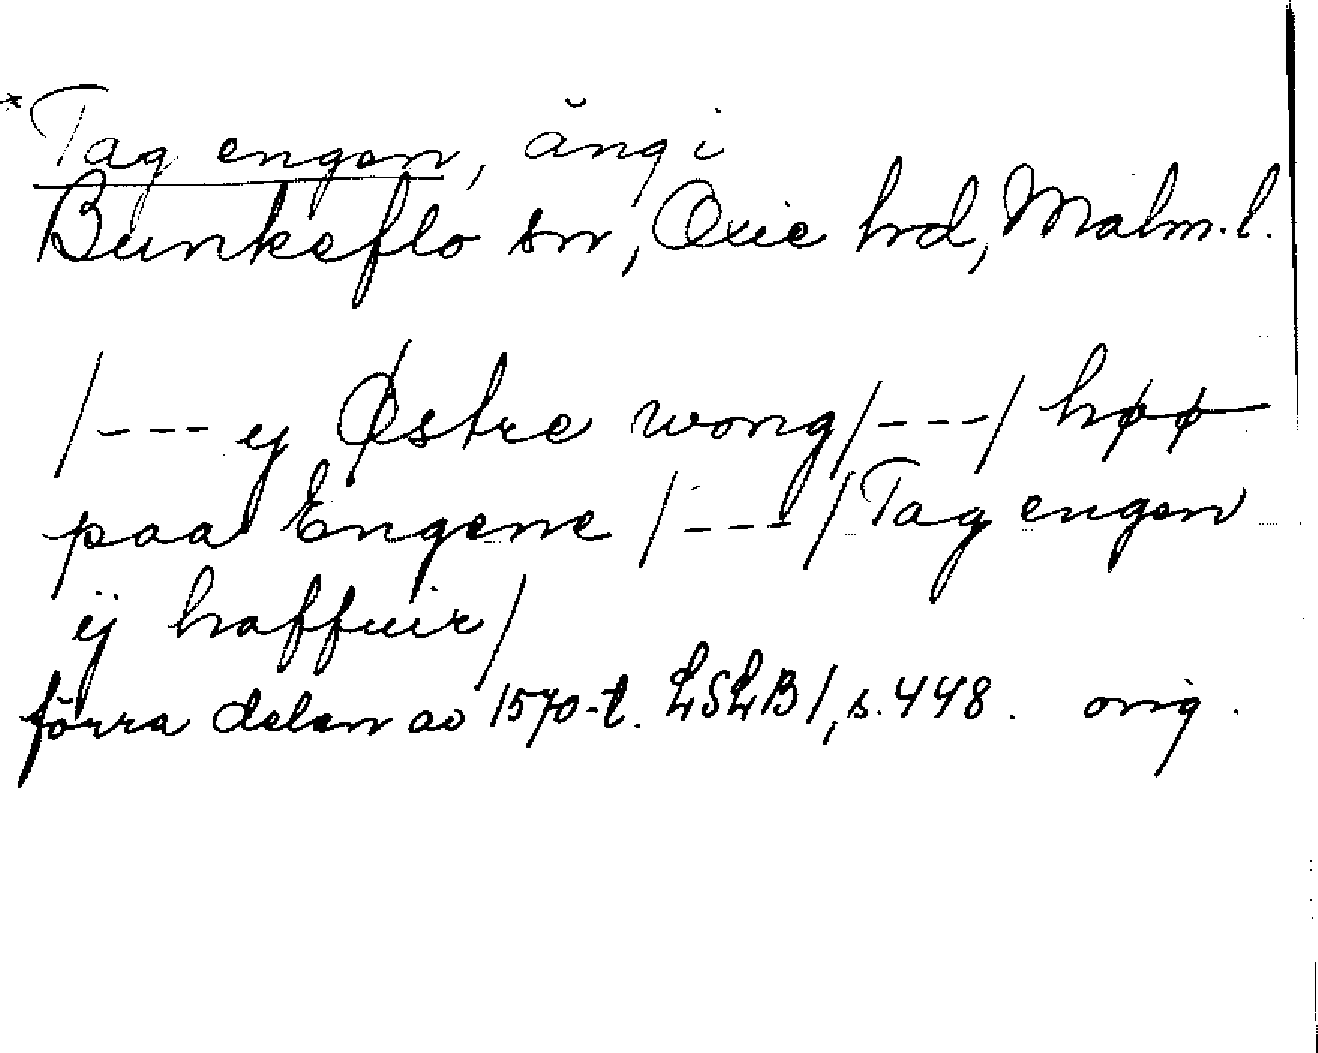 *Tag engen, äng i
Bunkeflo sn, Oxie hd, Malm. l.
/--- ij Østre wong/---/ høø
paa Engene /---/ Tag engen
ij haffuir/
förra delen av 1570-t. LSLB 1, s. 448. orig.